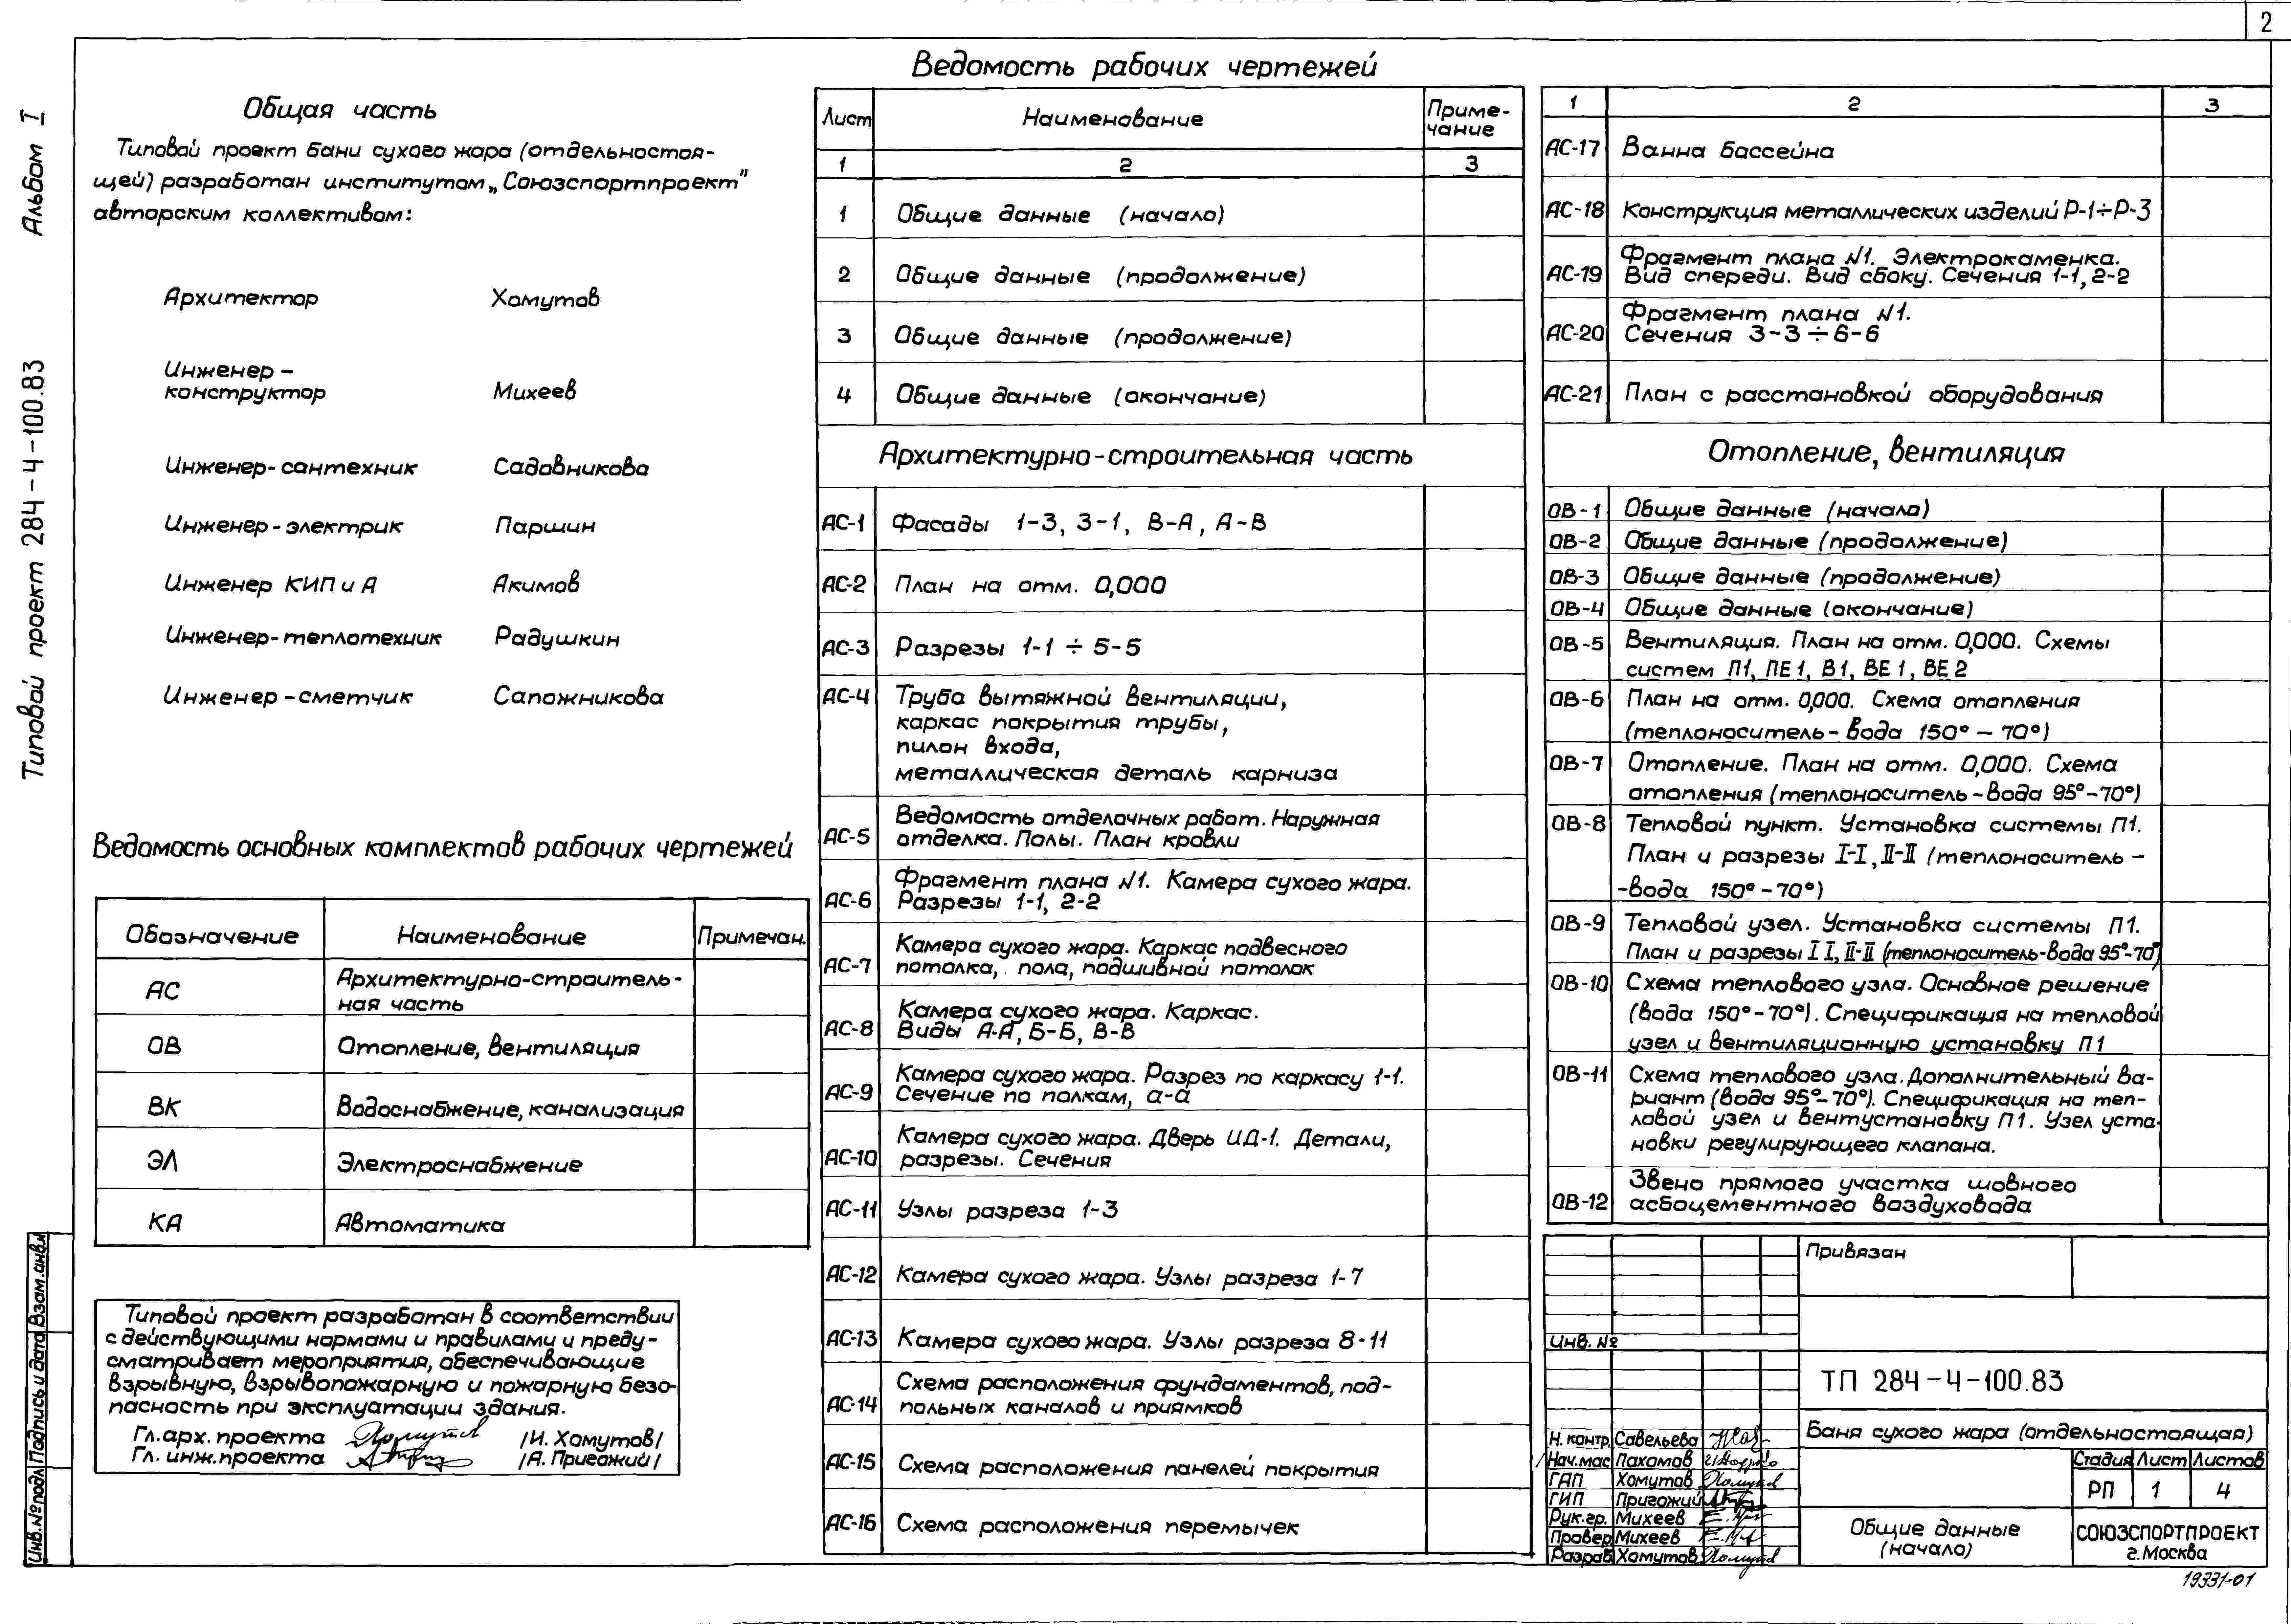 2
Альбом I
Типовой проект 284-4-100.83
Общая часть
Типовой проект бани сухого жара (отдельностоя-
щей) разработан институтом „Союзспортпроект"
авторским коллективом:
Архитектор Хомутов
Инженер-
конструктор Михеев
Инженер-сантехник Садовникова
Инженер-электрик Паршин
Инженер КИП и А Акимов
Инженер-теплотехник Радушкин
Инженер-сметчик Сапожникова
Ведомость основных комплектов рабочих чертежей
Обозначение Наименование Примечан.
АС Архитектурно-строитель-
ная часть
ОВ Отопление, вентиляция
ВК Водоснабжение, канализация
ЭЛ Электроснабжение
КА Автоматика
Типовой проект разработан в соответствии
с действующими нормами и правилами и преду-
сматривает мероприятия, обеспечивающие
взрывную, взрывопожарную и пожарную безо-
пасность при эксплуатации здания.
Гл. арх. проекта /И. Хомутов/
Гл. инж. проекта /А. Пригожий/
Инв.№ подл Подпись и дата Взам.инв.№
Ведомость рабочих чертежей
Лист Наименование Приме-
чание
1 2 3
1 Общие данные (начало)
2 Общие данные (продолжение)
3 Общие данные (продолжение)
4 Общие данные (окончание)
Архитектурно-строительная часть
АС-1 Фасады 1-3, 3-1, В-А, А-В
АС-2 План на отм. 0,000
АС-3 Разрезы 1-1 ÷ 5-5
АС-4 Труба вытяжной вентиляции,
каркас покрытия трубы,
пилон входа,
металлическая деталь карниза
АС-5 Ведомость отделочных работ. Наружная
отделка. Полы. План кровли
АС-6 Фрагмент плана №1. Камера сухого жара.
Разрезы 1-1, 2-2
АС-7 Камера сухого жара. Каркас подвесного
потолка, пола, подшивной потолок
АС-8 Камера сухого жара. Каркас.
Виды А-А, Б-Б, В-В
АС-9 Камера сухого жара. Разрез по каркасу 1-1.
Сечение по полкам, а-а
АС-10 Камера сухого жара. Дверь ИД-1. Детали,
разрезы. Сечения
АС-11 Узлы разреза 1-3
АС-12 Камера сухого жара. Узлы разреза 1-7
АС-13 Камера сухого жара. Узлы разреза 8-11
АС-14 Схема расположения фундаментов, под-
польных каналов и приямков
АС-15 Схема расположения панелей покрытия
АС-16 Схема расположения перемычек
1 2 3
АС-17 Ванна бассейна
АС-18 Конструкция металлических изделий Р-1÷Р-3
АС-19 Фрагмент плана №1. Электрокаменка.
Вид спереди. Вид сбоку. Сечения 1-1, 2-2
АС-20 Фрагмент плана №1.
Сечения 3-3 ÷ 6-6
АС-21 План с расстановкой оборудования
Отопление, вентиляция
ОВ-1 Общие данные (начало)
ОВ-2 Общие данные (продолжение)
ОВ-3 Общие данные (продолжение)
ОВ-4 Общие данные (окончание)
ОВ-5 Вентиляция. План на отм. 0,000. Схемы
систем П1, ПЕ1, В1, ВЕ1, ВЕ2
ОВ-6 План на отм. 0,000. Схема отопления
(теплоноситель-вода 150°-70°)
ОВ-7 Отопление. План на отм. 0,000. Схема
отопления (теплоноситель-вода 95°-70°)
ОВ-8 Тепловой пункт. Установка системы П1.
План и разрезы I-I, II-II (теплоноситель-
-вода 150°-70°)
ОВ-9 Тепловой узел. Установка системы П1.
План и разрезы I I, II-II (теплоноситель-вода 95°-70°)
ОВ-10 Схема теплового узла. Основное решение
(вода 150°-70°). Спецификация на тепловой
узел и вентиляционную установку П1
ОВ-11 Схема теплового узла. Дополнительный ва-
риант (вода 95°-70°). Спецификация на теп-
ловой узел и вентустановку П1. Узел уста-
новки регулирующего клапана.
ОВ-12 Звено прямого участка шовного
асбоцементного воздуховода
Привязан
Инв. №
ТП 284-4-100.83
Баня сухого жара (отдельностоящая)
Н. контр. Савельева
Нач.мас Пахомов
ГАП Хомутов
ГИП Пригожий
Рук.гр. Михеев
Провер Михеев
Разраб. Хомутов
Стадия Лист Листов
РП 1 4
Общие данные
(начало)
СОЮЗСПОРТПРОЕКТ
г.Москва
19331-01